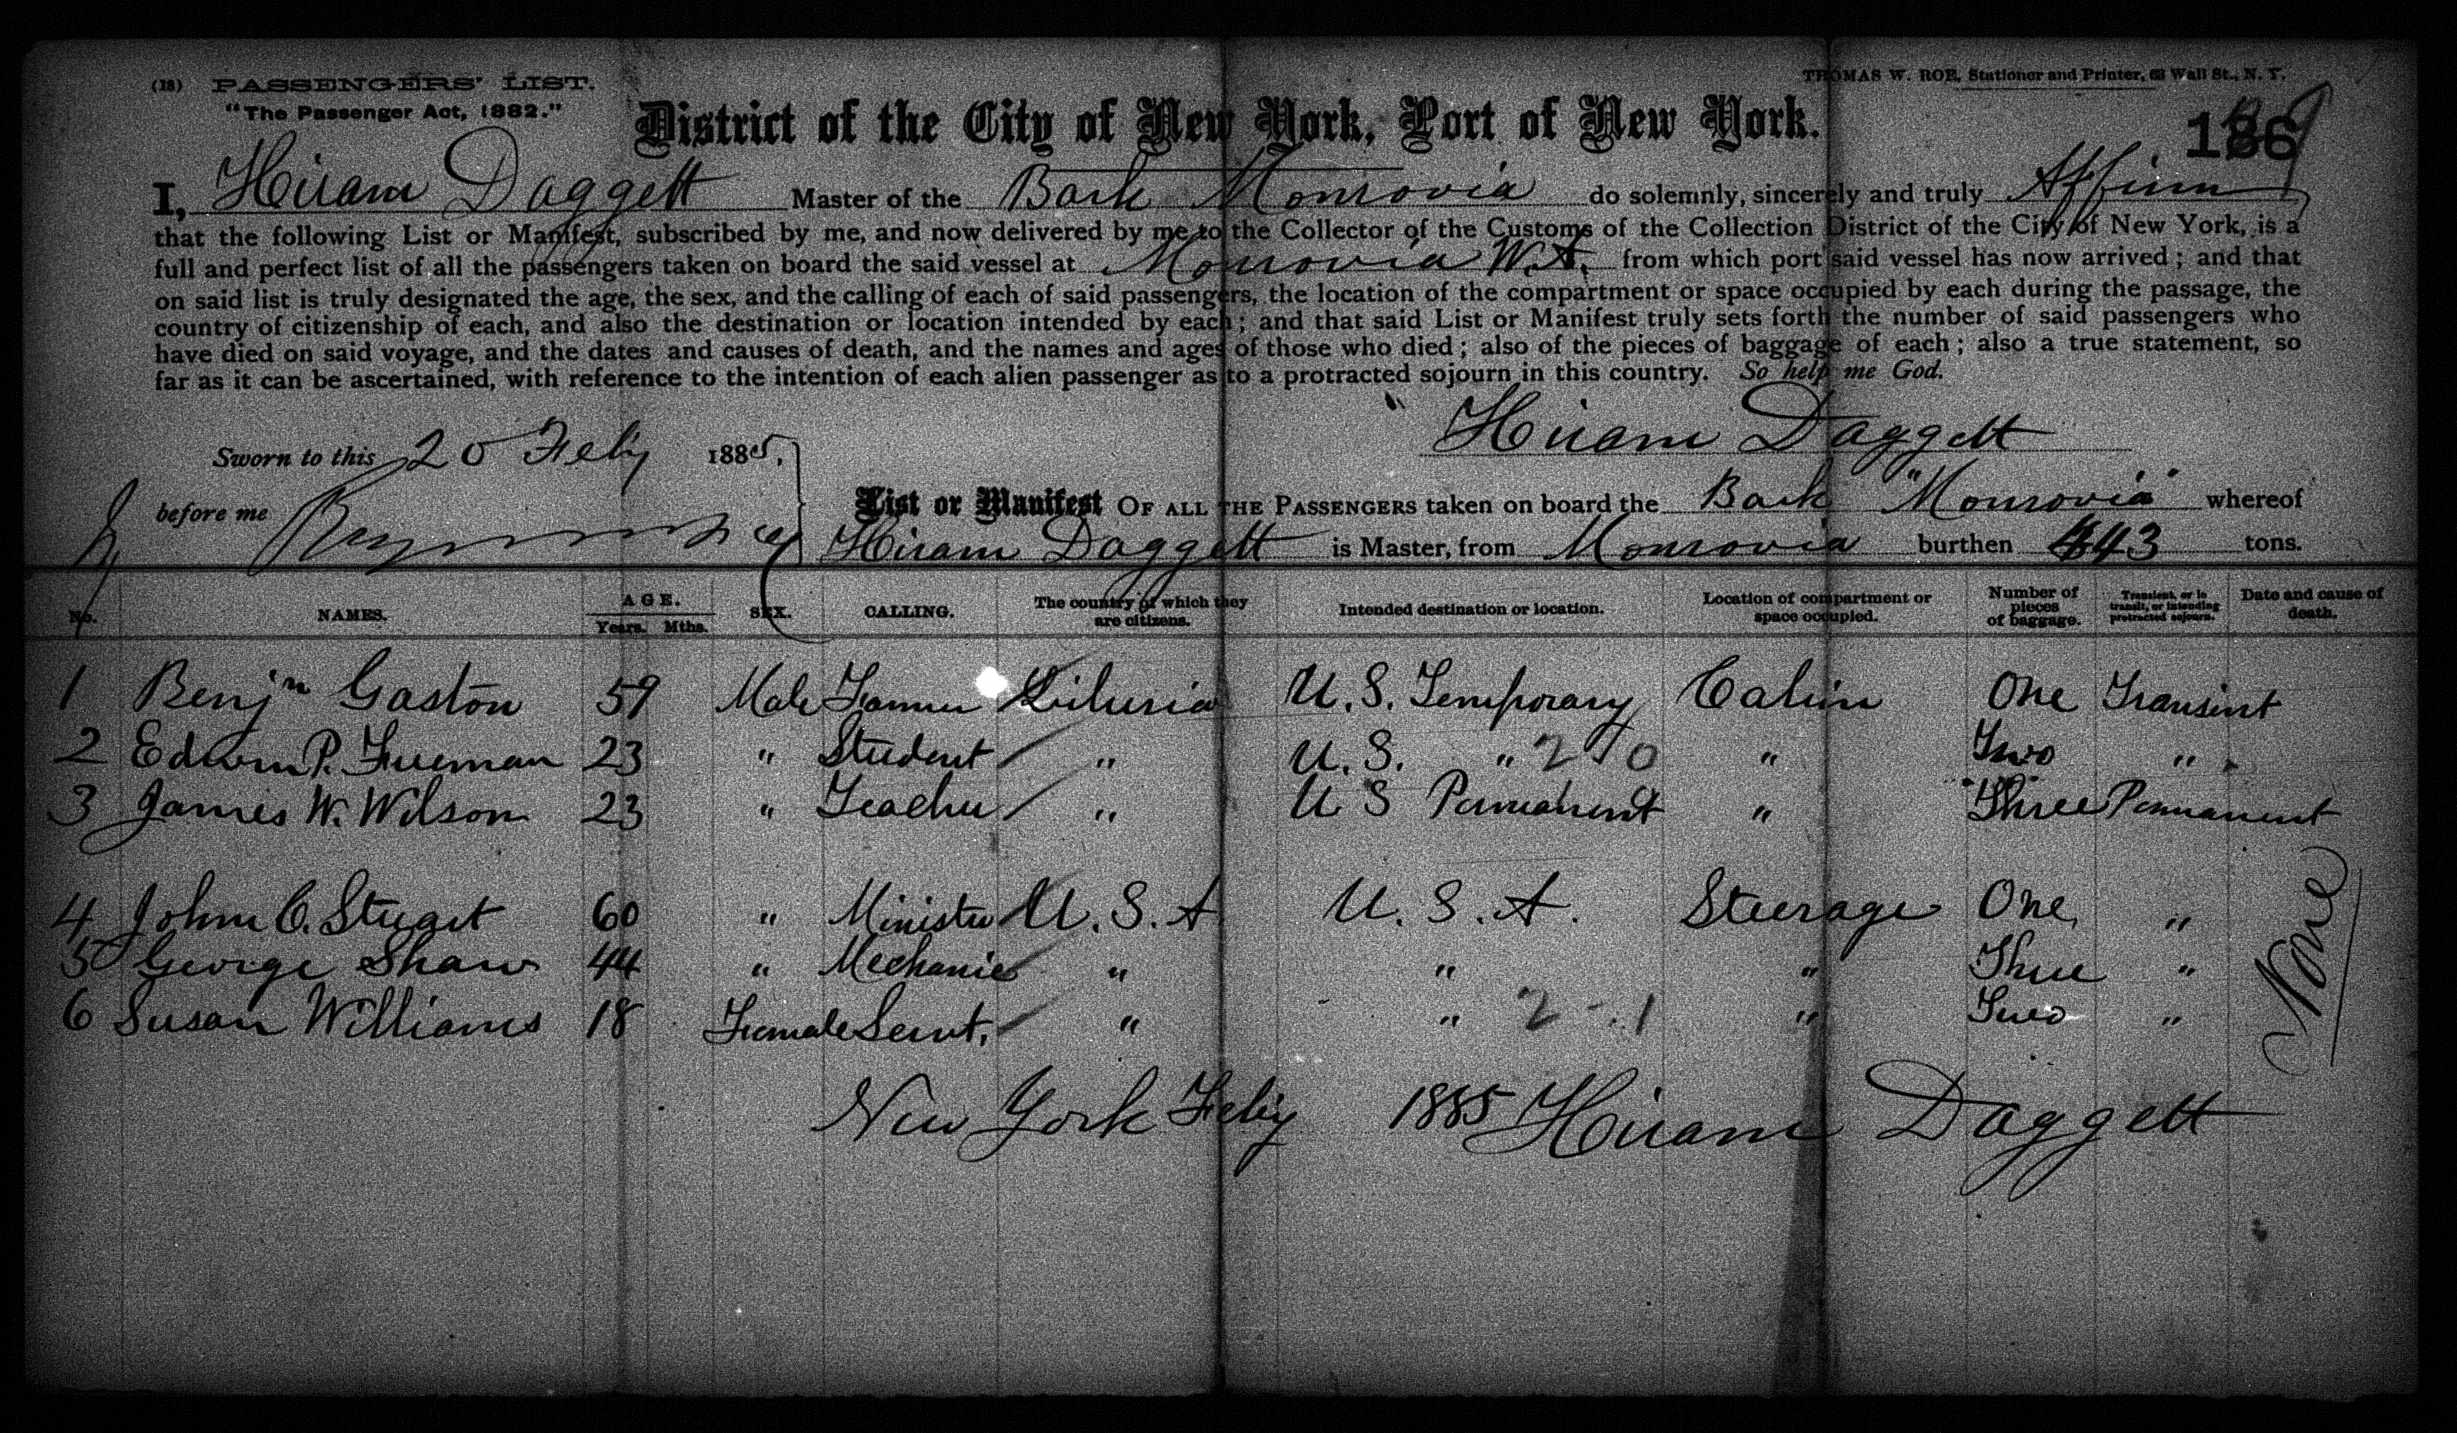 (18) PASSENGERS' LIST.
"The Passenger Act, 1882."
THOMAS W. ROE, Stationer and Printer, 63 Wall St., N. Y.
District of the City of New York, Port of New York.
I, Hiram Daggett Master of the Bark Monrovia do solemnly, sincerely and truly Affirm
that the following List or Manifest, subscribed by me, and now delivered by me to the Collector of the Customs of the Collection District of the City of New York, is a
full and perfect list of all the passengers taken on board the said vessel at Monrovia W.A. from which port said vessel has now arrived; and that
on said list is truly designated the age, the sex, and the calling of each of said passengers, the location of the compartment or space occupied by each during the passage, the
country of citizenship of each, and also the destination or location intended by each; and that said List or Manifest truly sets forth the number of said passengers who
have died on said voyage, and the dates and causes of death, and the names and ages of those who died; also of the pieces of baggage of each; also a true statement, so
far as it can be ascertained, with reference to the intention of each alien passenger as to a protracted sojourn in this country. So help me God.
Hiram Daggett
Sworn to this 20 Feby 1885,
before me
List or Manifest OF ALL THE PASSENGERS taken on board the Bark "Monrovia" whereof
Hiram Daggett is Master, from Monrovia burthen 443 tons.
No. NAMES. AGE. Years. Mths. SEX. CALLING. The country of which they are citizens. Intended destination or location. Location of compartment or space occupied. Number of pieces of baggage. Transient, or in transit, or intending protracted sojourn. Date and cause of death.
1 Benjn Gaston 59 Male Farmer Liberia U.S. Temporary Cabin One Transint
2 Edwin P. Freeman 23 " Student " U.S. " 2 10 " Two "
3 James W. Wilson 23 " Teacher " U S Permanent " Three Permanent
4 John C. Stewart 60 " Minister U.S.A U.S.A. Steerage One "
5 George Shaw 44 " Mechanic " " " Three "
6 Susan Williams 18 Female Servt. " " 2 - 1 " Two "
None
New York Feby 1885 Hiram Daggett